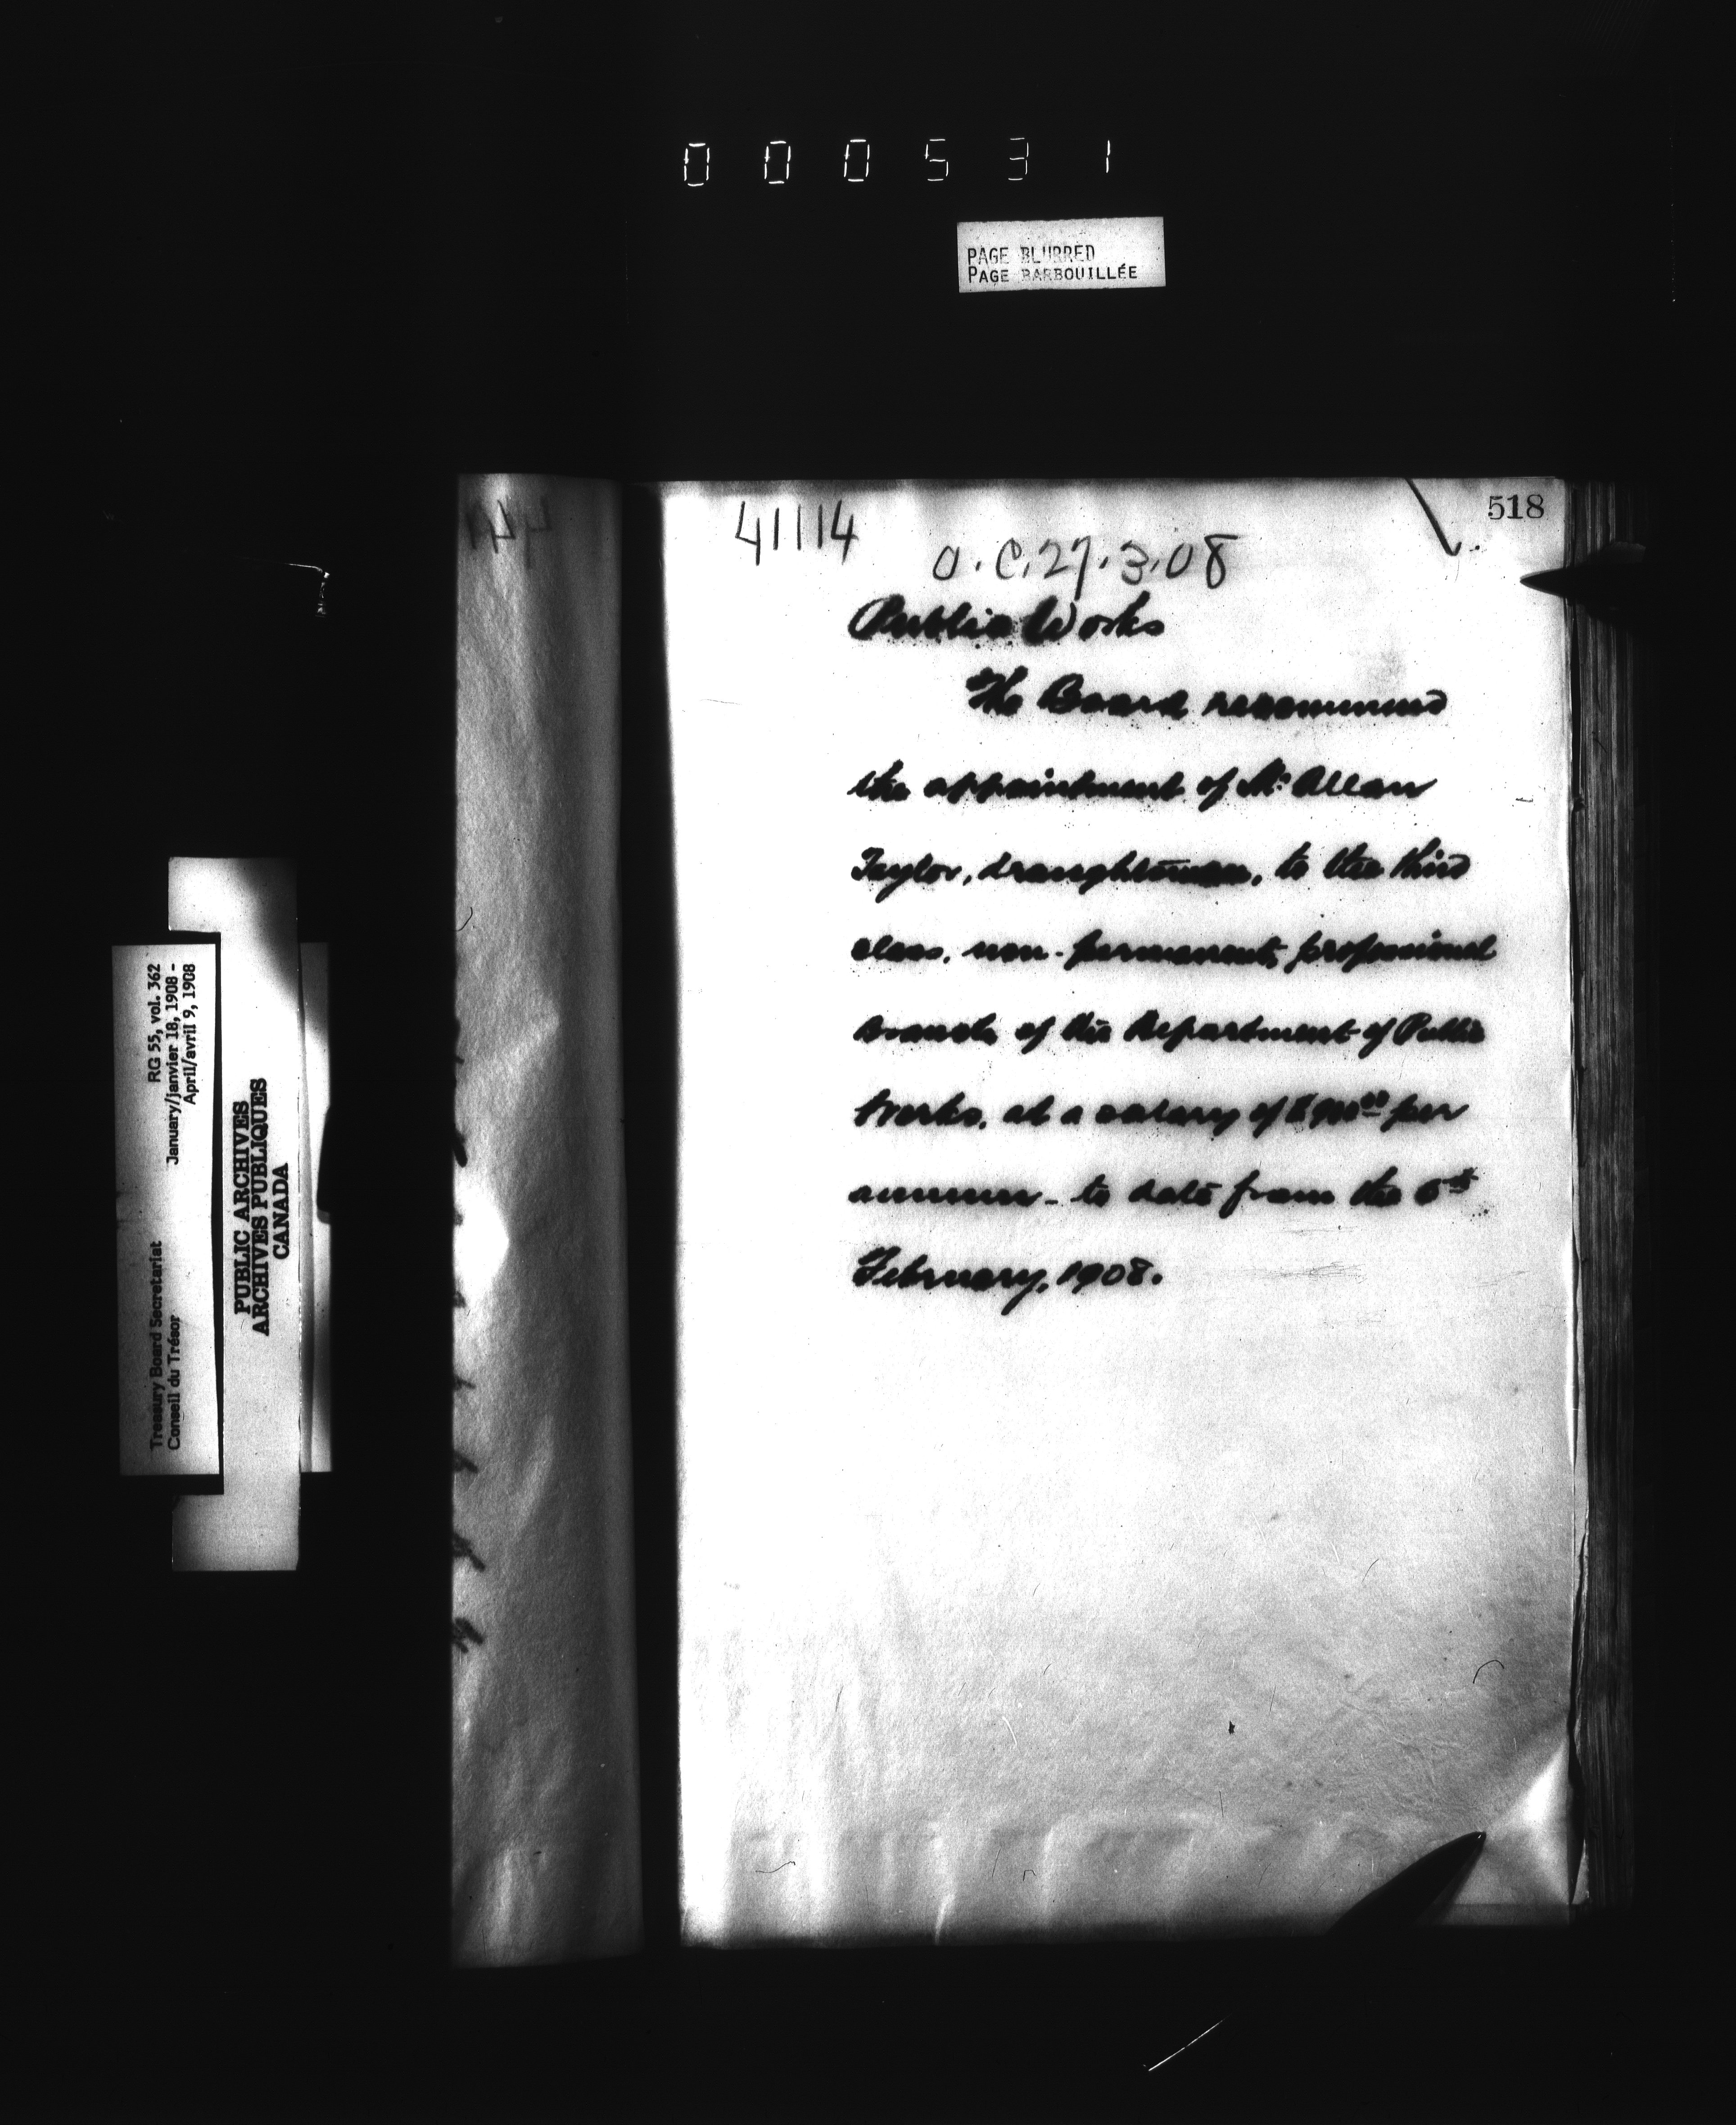 000531
PAGE BLURRED
PAGE BARBOUILLÉE
518
41114
O.C. 27.3.08
Public Works
The Board recommend
the appointment of Mr Allan
Taylor, draughtsman, to the third
class, non-permanent, professional
branch of the Department of Public
Works, at a salary of $900.00 per
annum - to date from the 6th
February, 1908.
Treasury Board Secretariat
Conseil du Trésor
RG 55, vol. 362
January/janvier 18, 1908 -
April/avril 9, 1908
PUBLIC ARCHIVES
ARCHIVES PUBLIQUES
CANADA